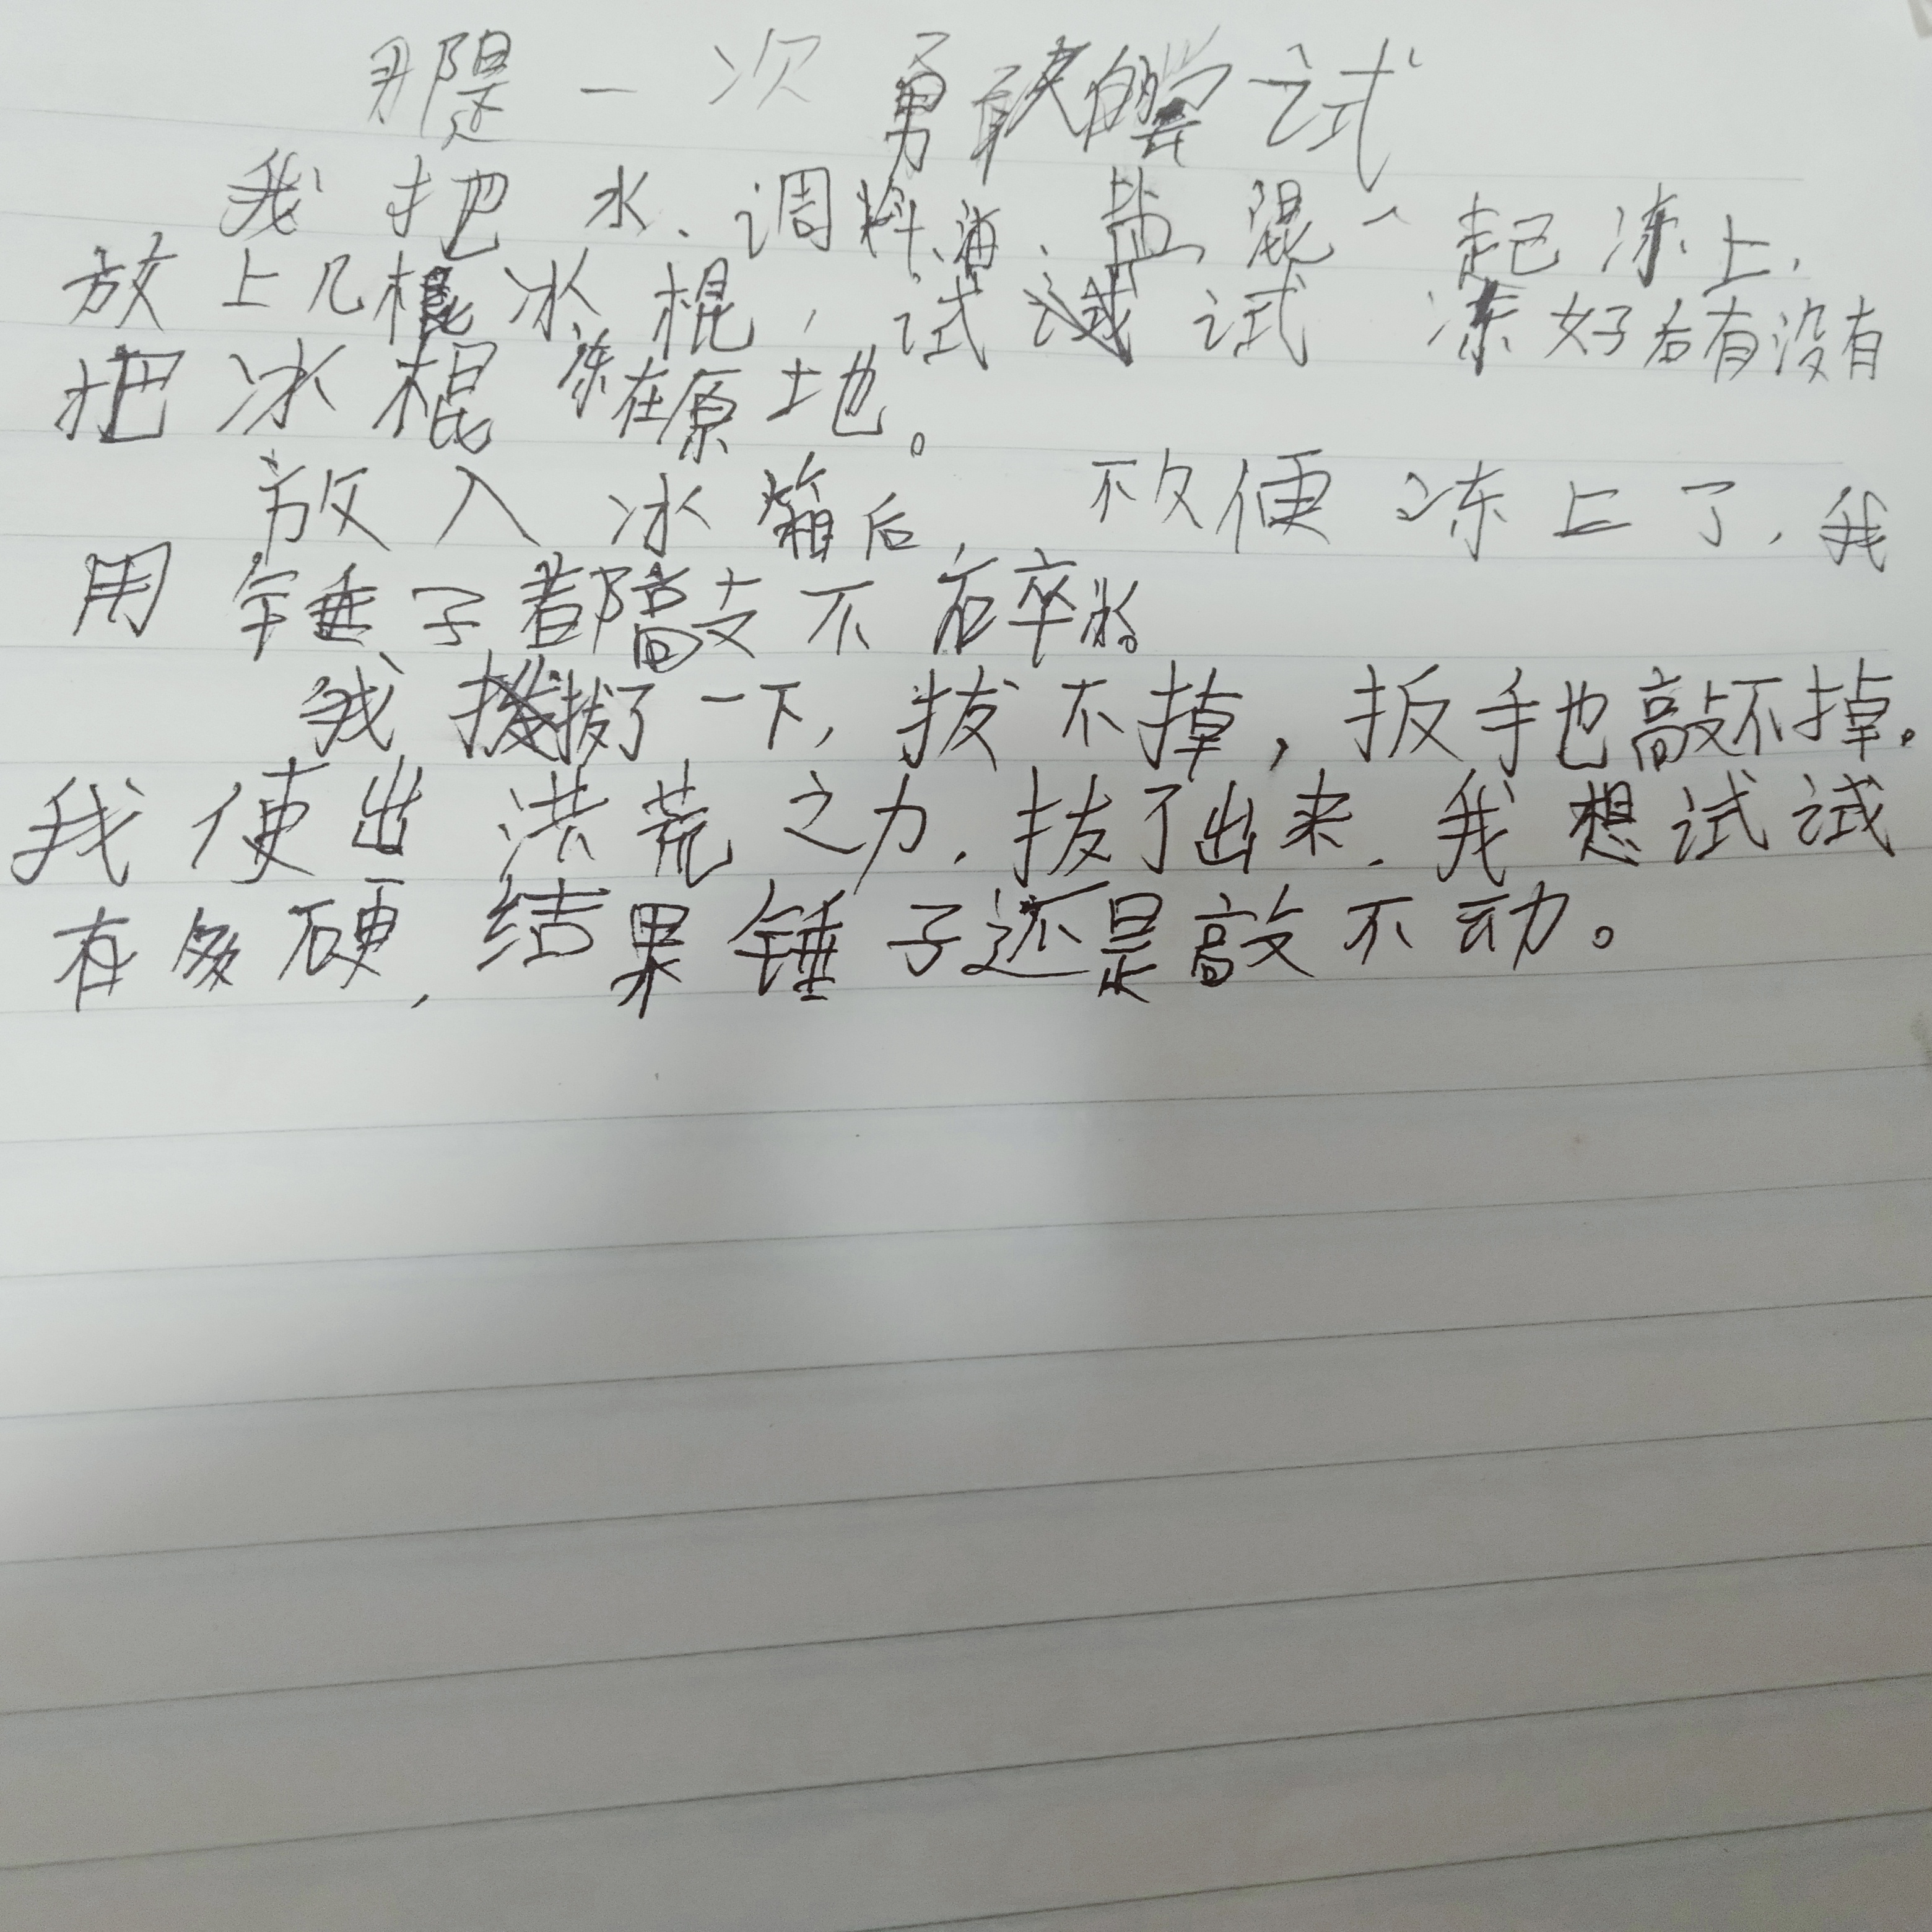 那是一次勇敢的尝试
我把水、调料、油、盐混一起冻上,
放上几棍冰棍,试试冻好后有没有
把冰棍冻在原地。
放入冰箱后,不久便冻上了,我
用锤子都敲不碎冰。
我拔了一下,拔不掉,扳手也敲不掉。
我使出洪荒之力,拔了出来,我想试试
有多硬,结果锤子还是敲不动。